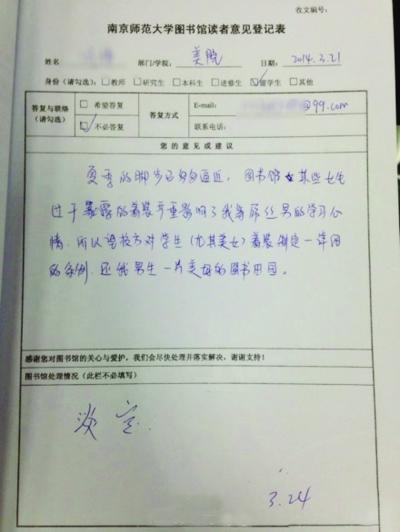 收文编号：
南京师范大学图书馆读者意见登记表
姓名 部门/学院： 美院 日期： 2014.3.21
身份（请勾选） □教师 □研究生 □本科生 □进修生 ☑留学生 □其他
答复与联络（请勾选） □ 希望答复 ☑ 不必答复 答复方式 E-mail: @99.com 联系电话：
您的意见或建议
夏季的脚步已匆匆逼近，图书馆某些女生
过于暴露的着装严重影响了我等屌丝男的学习心
情，所以望校方对学生（尤其美女）着装制定一详细
的条例，还我男生一片美好的图书田园。
感谢您对图书馆的关心与爱护，我们会尽快处理并落实解决，谢谢支持！
图书馆处理情况（此栏不必填写）
淡定.
3.24